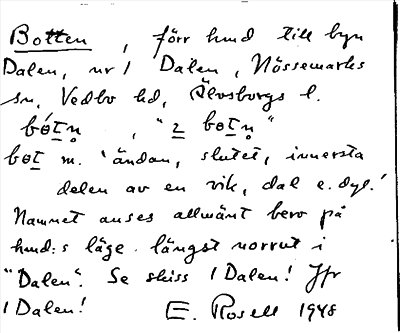 Botten, förr hmd till byn
Dalen, nr 1 Dalen, Nössemarks
sn, Vedbo hd, Älvsborgs l.
bót̲n̥, "2̲ bot̲n̥"
bot̲ m. 'ändan, slutet, innersta
delen av en vik, dal e. dyl.'
Namnet anses allmänt bero på
hmd:s läge längst norrut i
"Dalen". Se skiss 1 Dalen! Jfr
1 Dalen! E. Rosell 1948